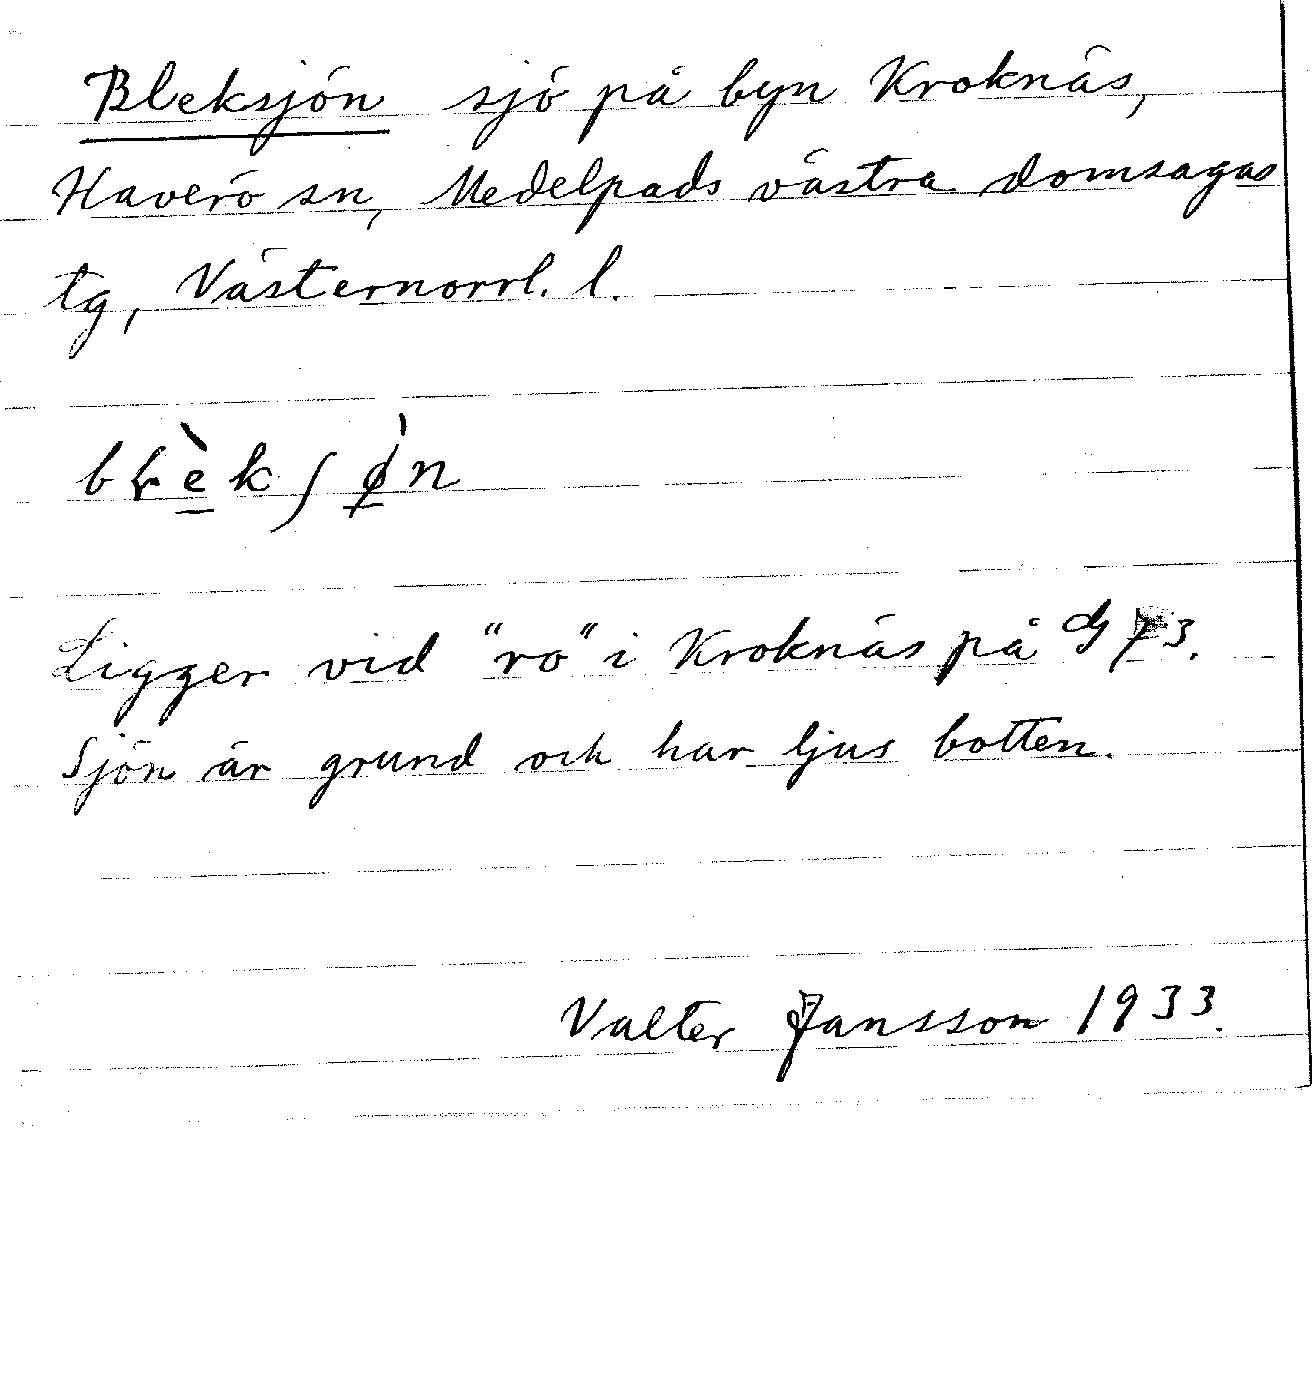 Bleksjön sjö på byn Kroknäs,
Haverö sn, Medelpads västra domsagas
tg, Västernorrl. l.
bɫèkʃø̀n
Ligger vid "ro" i Kroknäs på
Sjön är grund och har ljus botten.
Valter Jansson 1933.